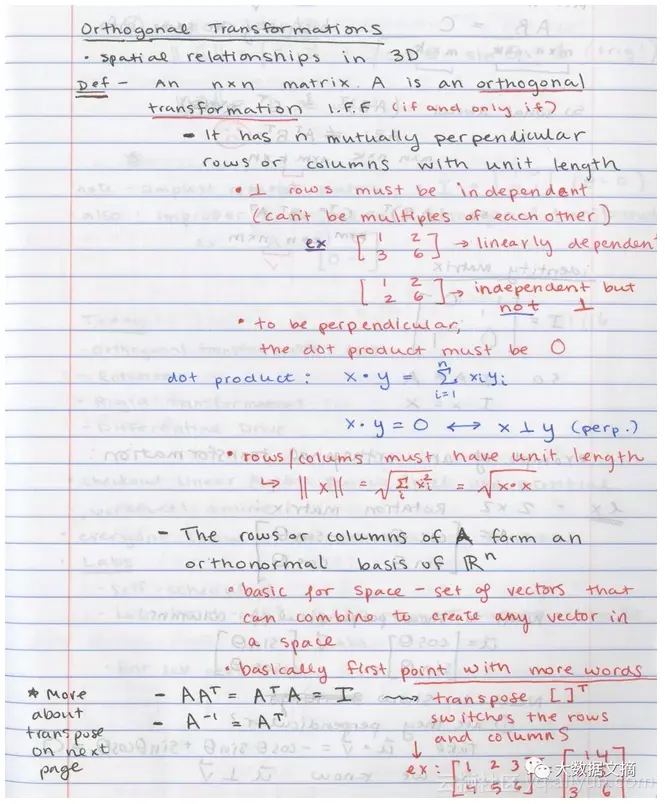 Orthogonal Transformations
• spatial relationships in 3D
Def - An n×n matrix A is an orthogonal
transformation I.F.F (if and only if)
- It has n mutually perpendicular
rows or columns with unit length
• ⊥ rows must be independent
(can't be multiples of each other)
ex [1 2
3 6] → linearly dependent
[1 2
2 6] → independent but
not ⊥
• to be perpendicular,
the dot product must be 0
dot product: x • y = Σ xi yi
n
i=1
x • y = 0 ⟷ x ⊥ y (perp.)
• rows/colums must have unit length
↳ ‖x‖ = √(Σi xi²) = √(x•x)
- The rows or columns of A form an
orthonormal basis of ℝⁿ
• basic for space - set of vectors that
can combine to create any vector in
a space
• basically first point with more words
* More
about
transpose
on next
page
- AAᵀ = AᵀA = I ⟿ transpose [ ]ᵀ
- A⁻¹ = Aᵀ
switches the rows
and columns
↓
ex: [1 2 3
4 5 6]
[1 4
3 6]
大数据文摘